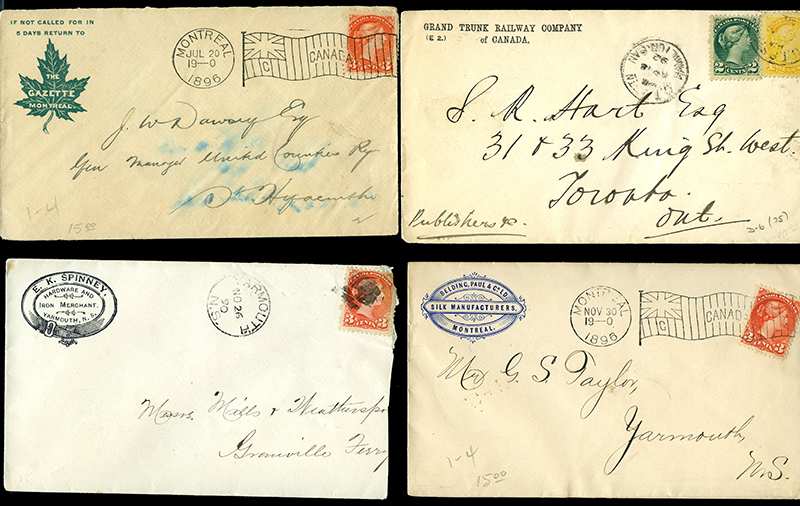 IF NOT CALLED FOR IN
5 DAYS RETURN TO
THE
GAZETTE
MONTREAL.
MONTREAL
JUL 20
19-0
1896
CANADA
C
3 CENTS 3
J. W. Dawsey Esq
Gen Manager United Counties Ry
St. Hyacinthe
1-4
15.00
GRAND TRUNK RAILWAY COMPANY
(E 2.) of CANADA.
2 CENTS 2
92
S. R. Hart Esq
31 & 33 King St. West.
Toronto.
Ont.
Publishers &c.
3-6 (75)
E. K. SPINNEY,
HARDWARE AND
IRON MERCHANT.
YARMOUTH, N. S.
YARMOUTH
NO 26
90
N.S.
3 CENTS 3
Messrs. Mills &
Granville Ferry
BELDING, PAUL & CO. LD.
SILK MANUFACTURERS,
MONTREAL.
MONTREAL
NOV 30
19-0
1896
CANADA
C
3 CENTS 3
Mr G. S. Taylor,
Yarmouth,
N.S.
1-4
15.00